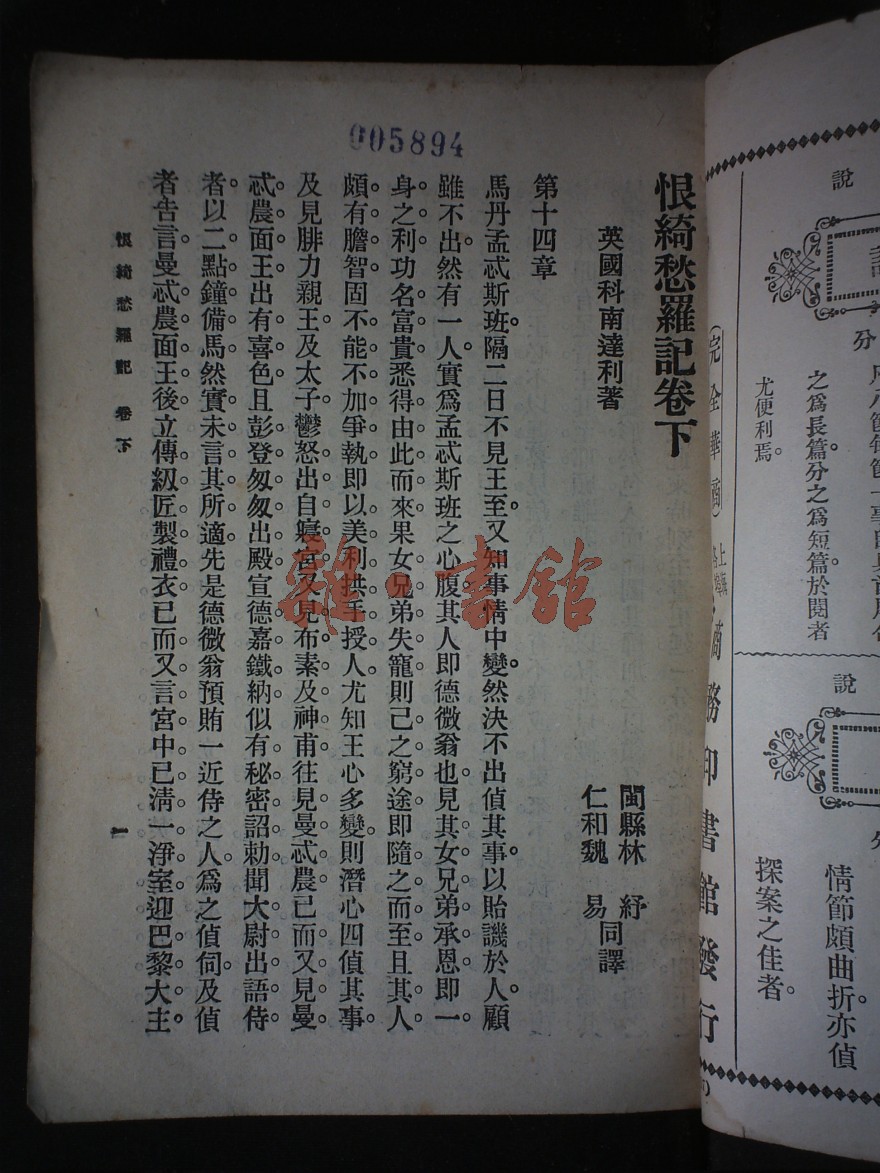 005894
恨綺愁羅記卷下
英國科南達利著
閩縣林　紓
仁和魏　易同譯
第十四章
馬丹孟忒斯班。隔二日不見王至。又知事情中變。然決不出偵其事。以貽譏於人。顧
雖不出。然有一人。實爲孟忒斯班之心腹。其人卽德微翁也。見其女兄弟承恩。卽一
身之利。功名富貴。悉得由此而來。果女兄弟失寵。則己之窮途。卽隨之而至。且其人
頗有膽智。固不能不加爭執。卽以美利拱手授人。尤知王心多變。則潛心四偵其事。
及見腓力親王及太子。鬱怒出自寢宮。又見布素及神甫往見曼忒農。已而又見曼
忒農面王。出有喜色。且彭登匆匆出殿。宣德嘉鐵納。似有秘密詔勅。聞大尉出語侍
者。以二點鐘備馬。然實未言其所適。先是德微翁預賄一近侍之人。爲之偵伺。及偵
者告言曼忒農面王後。立傳級匠製禮衣。已而又言宮中已淸一淨室。迎巴黎大主
恨綺愁羅記　卷下
一
雜·書館
說
分
之爲長篇。分之爲短篇。於閱者
尤便利焉。
（完全華商）
商務印書館發行
說
情節頗曲折。亦偵
探案之佳者。